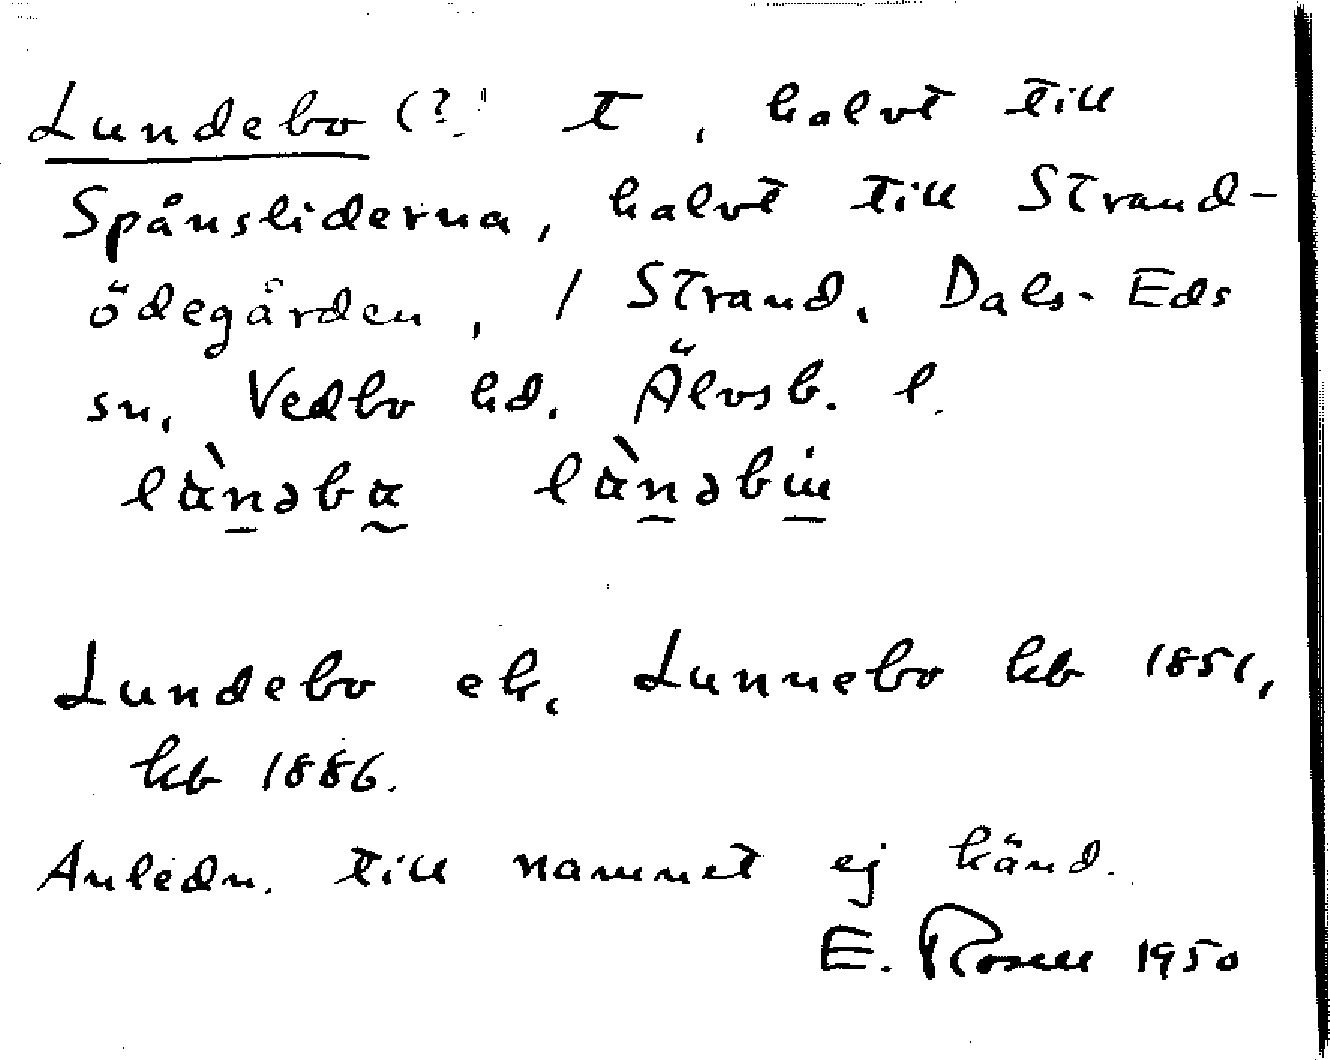 Lundebo (?) t, halvt till
Spånsliderna, halvt till Strand-
ödegården, / Strand. Dals-Eds
sn, Vedbo hd. Älvsb. l.
Lundebo ek, Lunnebo kb 1851,
kb 1886.
Anledn. till namnet ej känd.
E. Rosell 1950